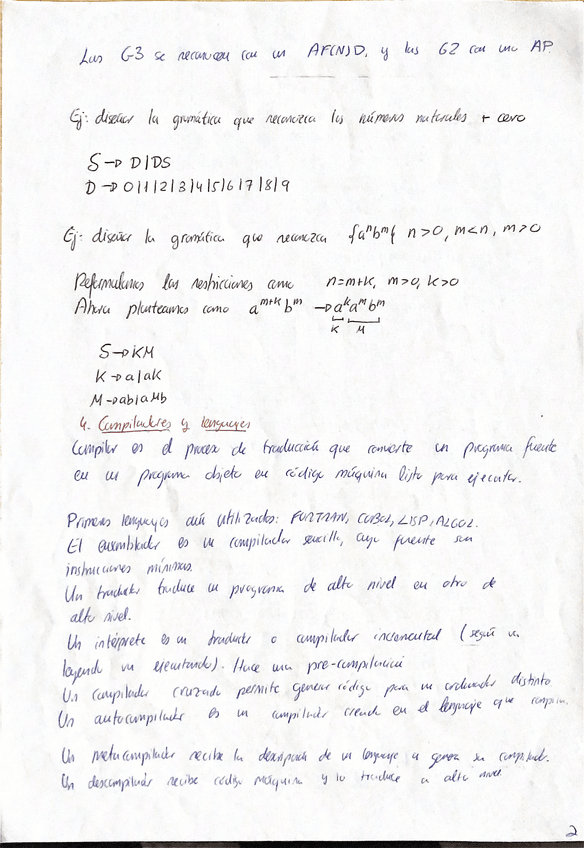 Las G3 se reconocen con un AF(N)D, y las G2 con un AP.
Ej: diseñar la gramática que reconozca los números naturales + cero
S→D|DS
D→0|1|2|3|4|5|6|7|8|9
Ej: diseñar la gramática que reconozca {aⁿbᵐ} n>0, m<n, m>0
Reformulamos las restricciones como n=m+k, m>0, k>0
Ahora planteamos como aᵐ⁺ᵏbᵐ → aᵏaᵐbᵐ
K M
S→KM
K→a|aK
M→ab|aMb
4. Compiladores y lenguajes
Compilar es el proceso de traducción que convierte un programa fuente
en un programa objeto en código máquina listo para ejecutar.
Primeros lenguajes aún utilizados: FORTRAN, COBOL, LISP, ALGOL.
El ensamblador es un compilador sencillo, cuya fuente son
instrucciones mínimas.
Un traductor traduce un programa de alto nivel en otro de
alto nivel.
Un intérprete es un traductor o compilador incremental (según va
leyendo va ejecutando). Hace una pre-compilación
Un compilador cruzado permite generar código para un ordenador distinto
Un autocompilador es un compilador creado en el lenguaje que compila.
Un metacompilador recibe la descripción de un lenguaje y genera su compilador.
Un descompilador recibe código máquina y lo traduce a alto nivel
2